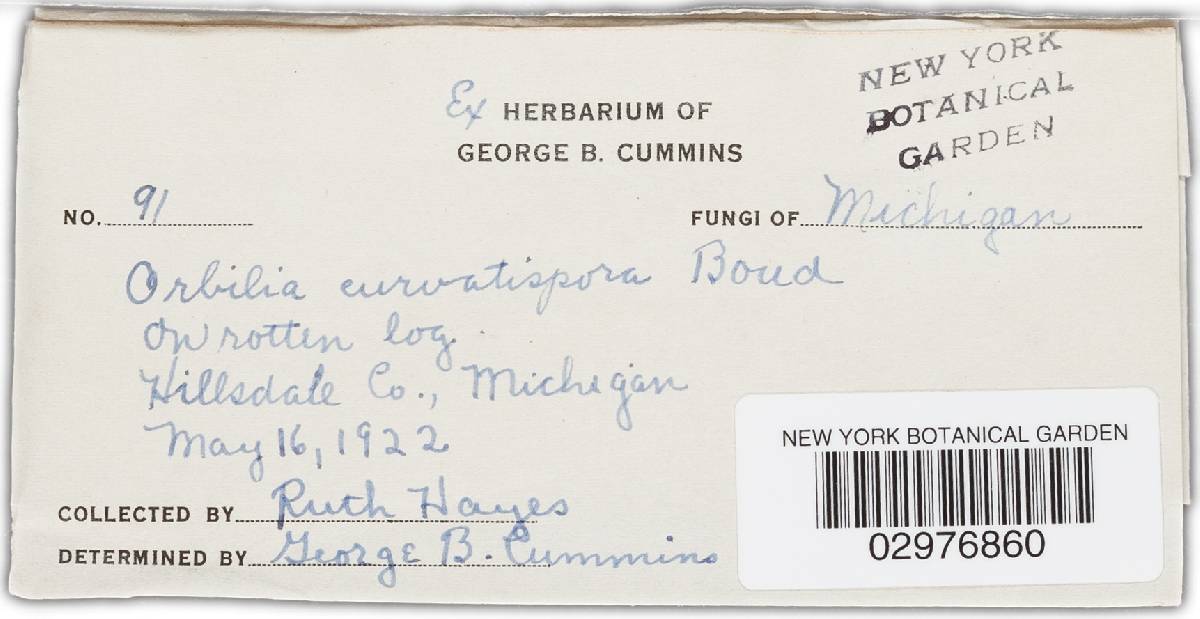 Ex HERBARIUM OF
GEORGE B. CUMMINS
NEW YORK
BOTANICAL
GARDEN
NO. 91
FUNGI OF Michigan
Orbilia curvatispora Boud
On rotten log.
Hillsdale Co., Michigan
May 16, 1922
COLLECTED BY Ruth Hayes
DETERMINED BY George B. Cummins
NEW YORK BOTANICAL GARDEN
02976860